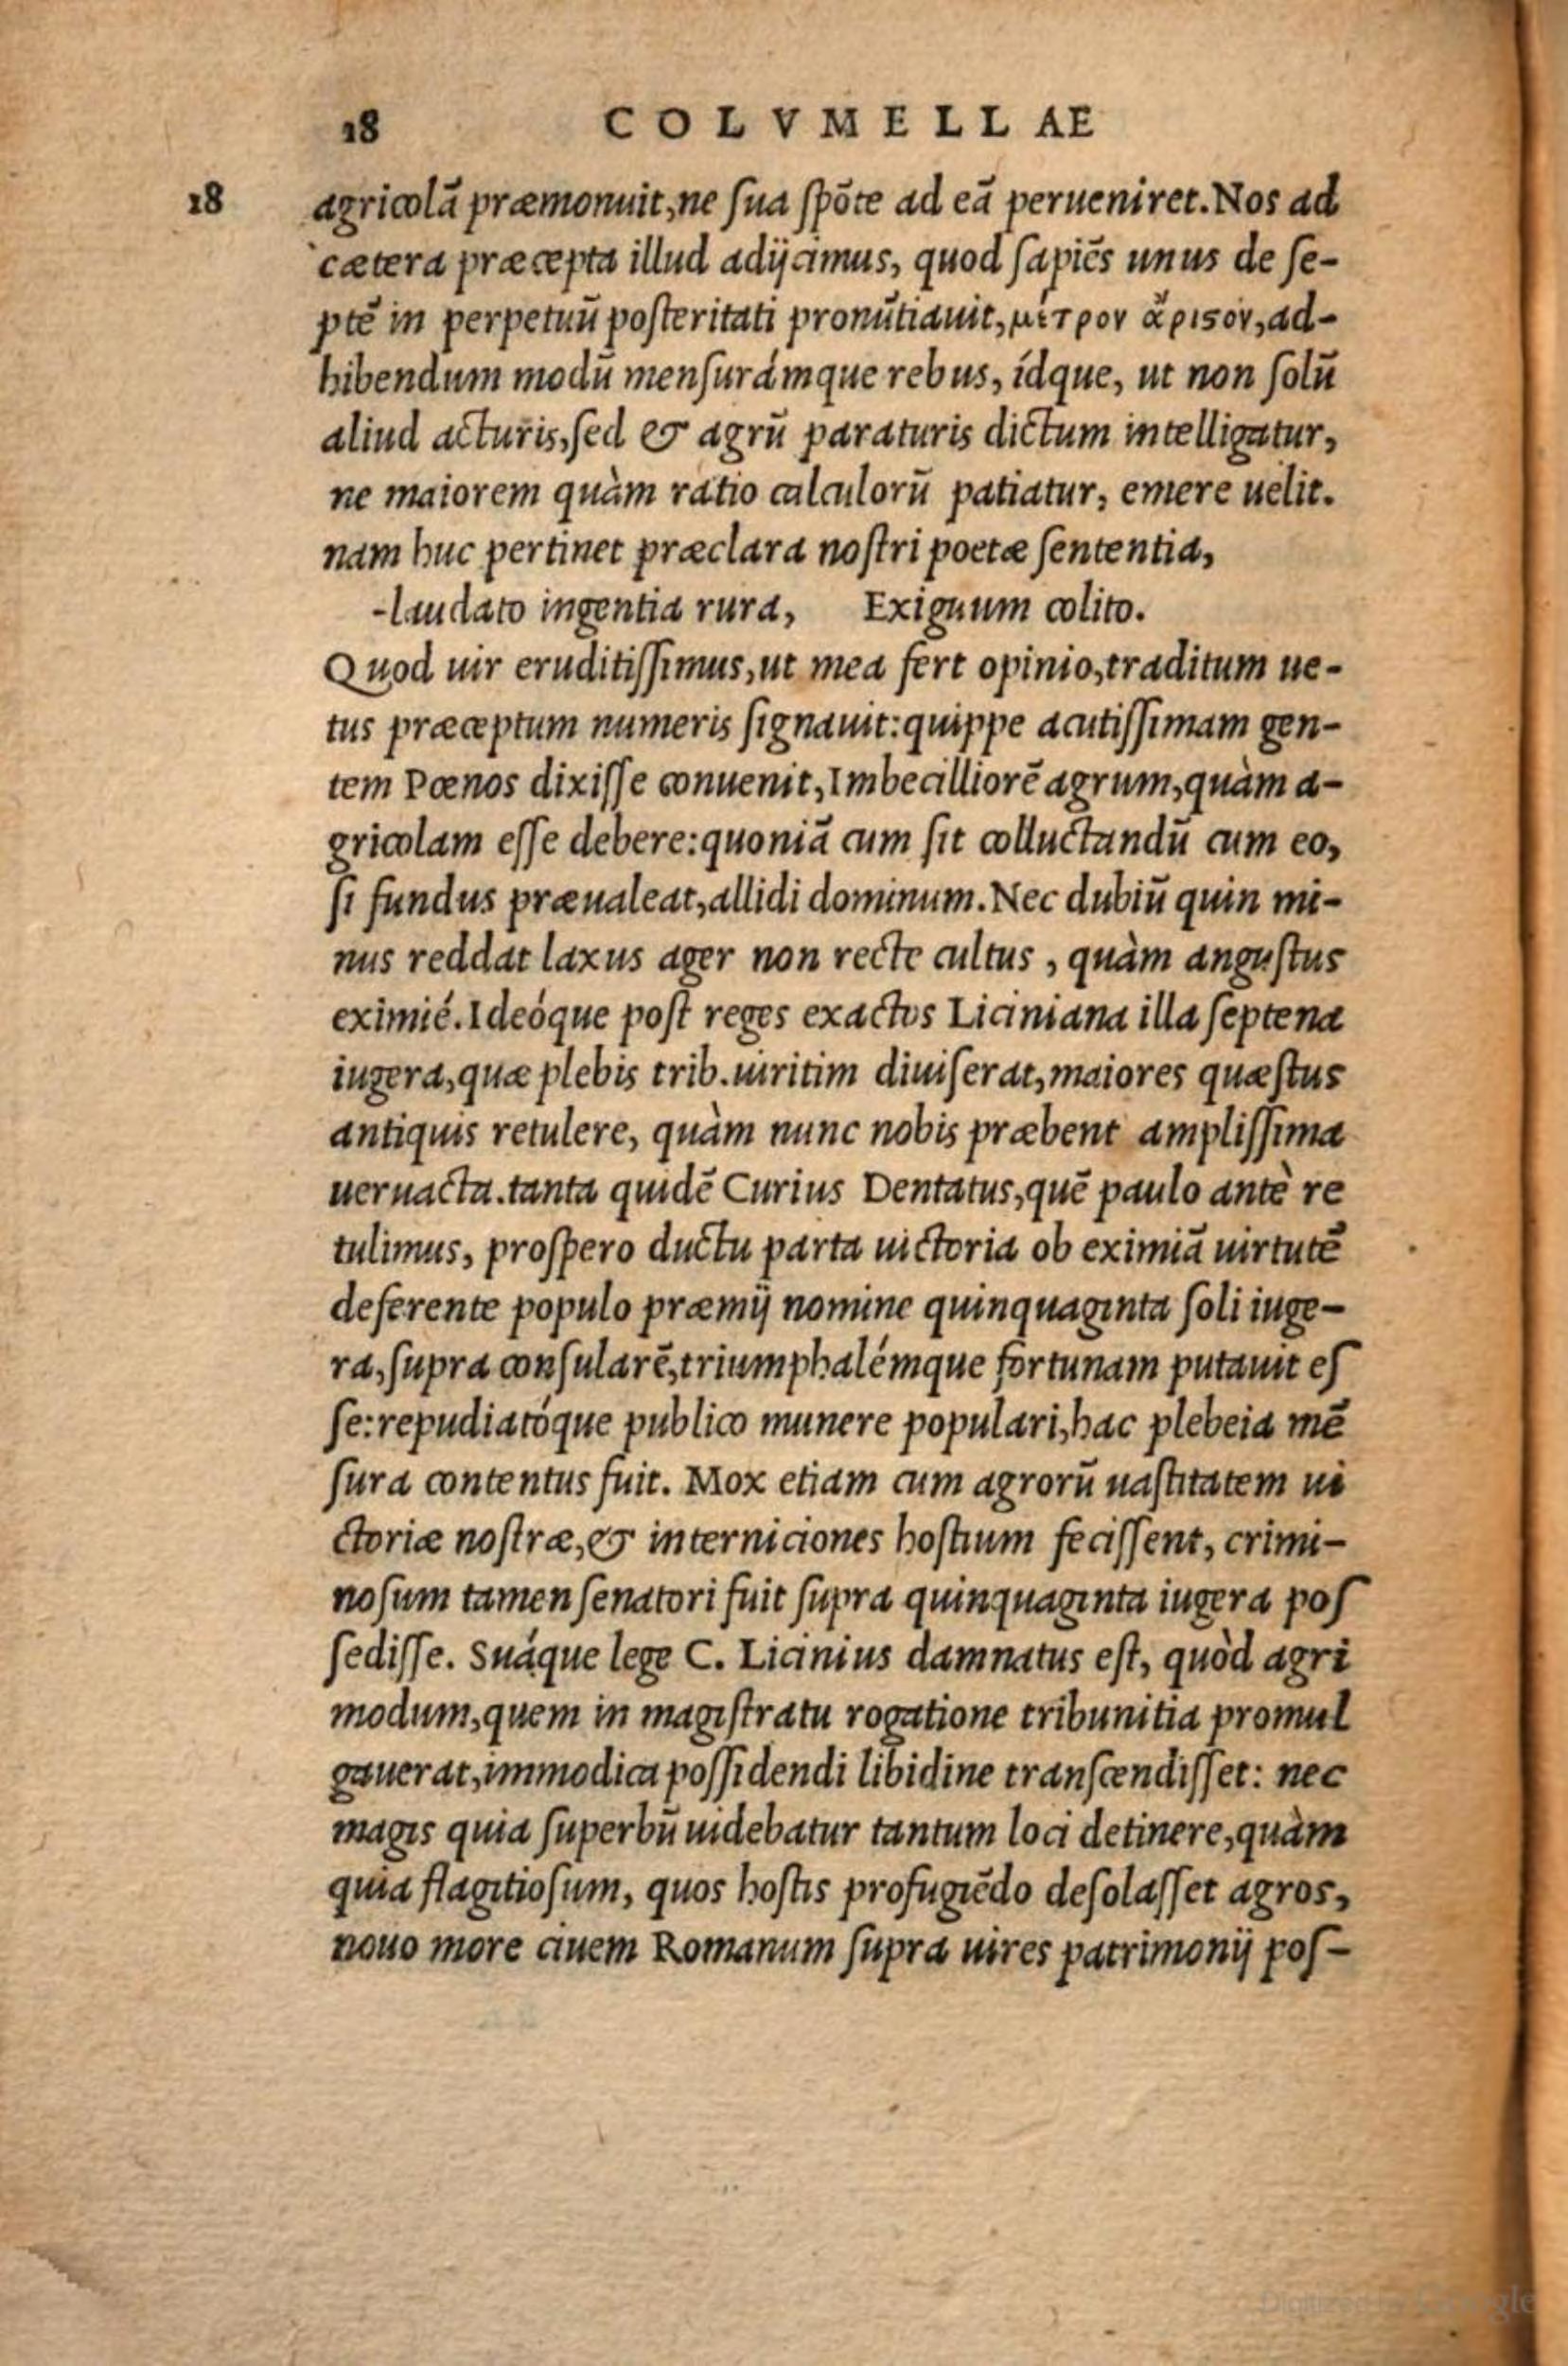 18 COLVMELLAE
18 agricolā præmonuit, ne ſua ſpōte ad eā perueniret. Nos ad
cætera præcepta illud adijcimus, quod ſapiēs unus de ſe-
ptē in perpetuū poſteritati pronūtiauit, μέτρον ἄριϛον, ad-
hibendum modū menſurámque rebus, ídque, ut non ſolū
aliud acturis, ſed & agrū paraturis dictum intelligatur,
ne maiorem quàm ratio calculorū patiatur, emere uelit.
nam huc pertinet præclara noſtri poetæ ſententia,
-laudato ingentia rura, Exiguum colito.
Quod uir eruditiſſimus, ut mea fert opinio, traditum ue-
tus præceptum numeris ſignauit: quippe acutiſſimam gen-
tem Pœnos dixiſſe conuenit, Imbecilliorē agrum, quàm a-
gricolam eſſe debere: quoniā cum ſit colluctandū cum eo,
ſi fundus præualeat, allidi dominum. Nec dubiū quin mi-
nus reddat laxus ager non recte cultus, quàm anguſtus
eximié. Ideóque poſt reges exactos Liciniana illa ſeptena
iugera, quæ plebis trib. uiritim diuiſerat, maiores quæſtus
antiquis retulere, quàm nunc nobis præbent ampliſſima
ueruacta. tanta quidē Curius Dentatus, quē paulo antè re
tulimus, proſpero ductu parta uictoria ob eximiā uirtutē
deferente populo præmij nomine quinquaginta ſoli iuge-
ra, ſupra conſularē, triumphalémque fortunam putauit eſ
ſe: repudiatóque publico munere populari, hac plebeia mē
ſura contentus fuit. Mox etiam cum agrorū uaſtitatem ui
ctoriæ noſtræ, & interniciones hoſtium feciſſent, crimi-
noſum tamen ſenatori fuit ſupra quinquaginta iugera poſ
ſediſſe. Suáque lege C. Licinius damnatus eſt, quòd agri
modum, quem in magiſtratu rogatione tribunitia promul
gauerat, immodica poſſidendi libidine tranſcendiſſet: nec
magis quia ſuperbū uidebatur tantum loci detinere, quàm
quia flagitioſum, quos hoſtis profugiēdo deſolaſſet agros,
nouo more ciuem Romanum ſupra uires patrimonij poſ-
Digitized by Google